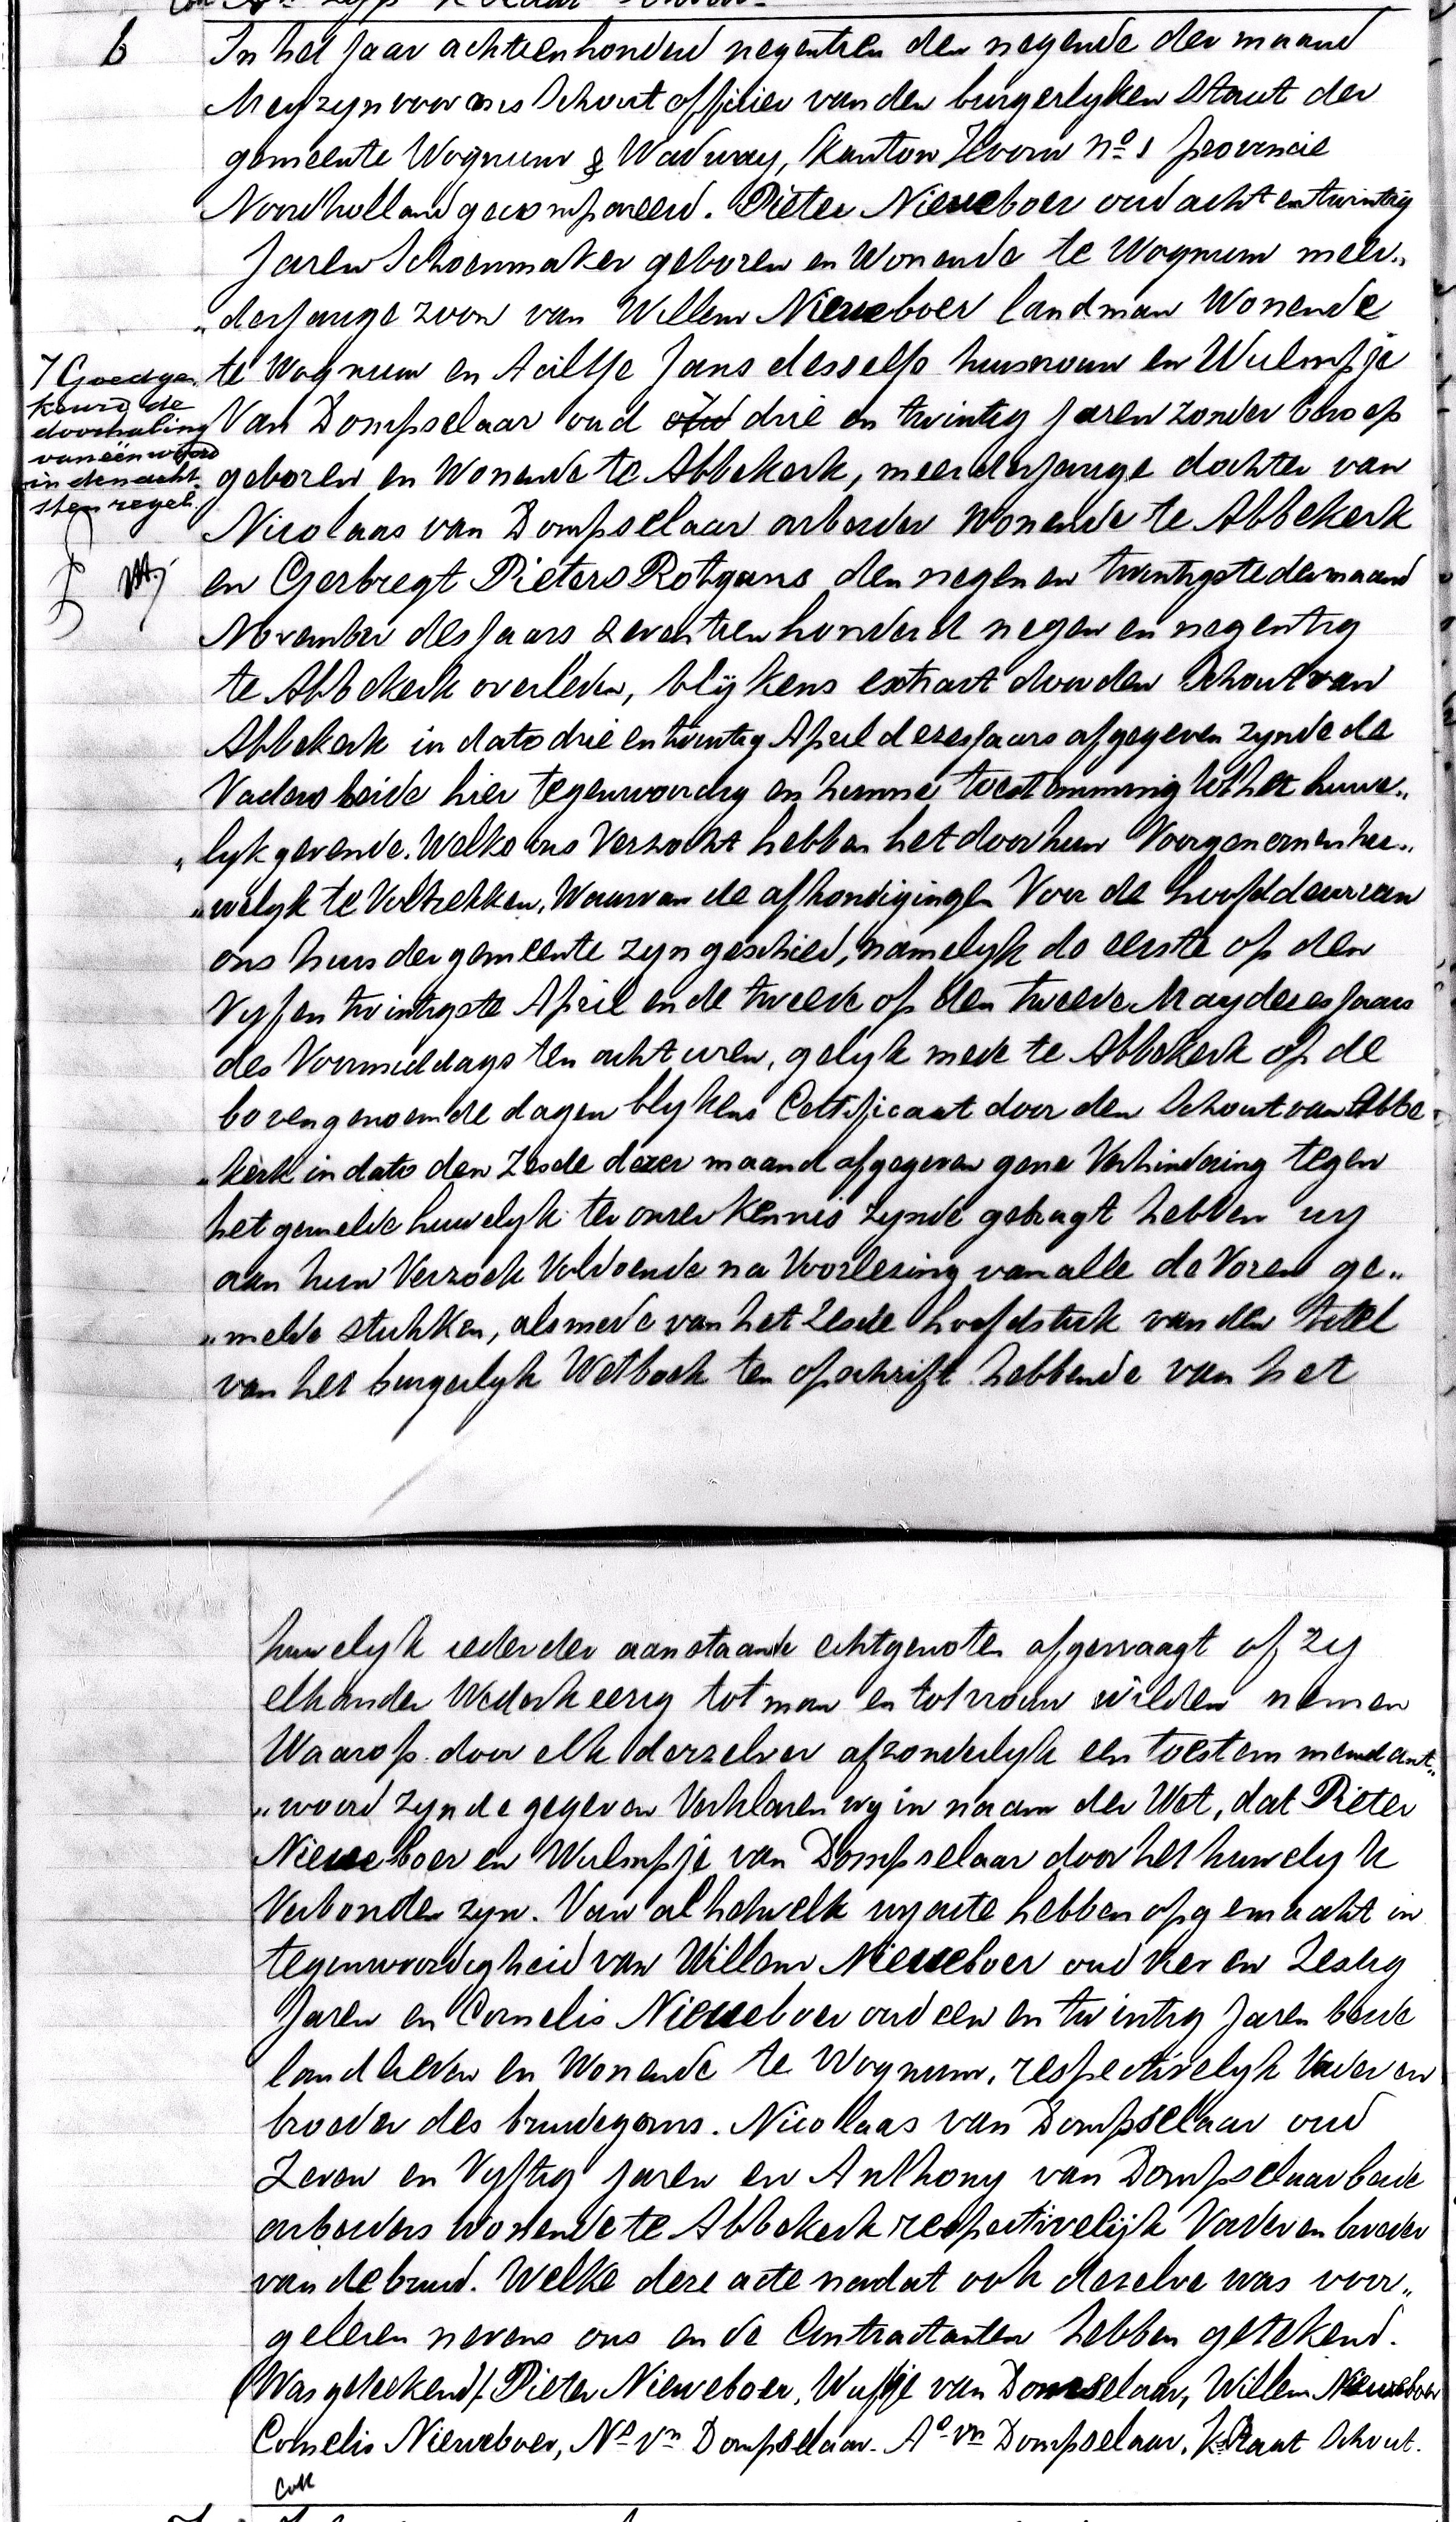 6
In het Jaar achttienhonderd negentien den negende der maand
Mey zyn voor ons Schout officier van den burgerlyken Staat der
gemeente Wognum & Wadway, Kanton Hoorn No 1 provincie
Noordholland gecompareerd. Pieter Nieuweboer oud acht en twintig
Jaren Schoenmaker geboren en Wonende te Wognum meer„
„derjarige zoon van Willem Nieuweboer landman Wonende
te Wognum en Aaltje Jans desselfs huisvrouw en Wulmpje
Van Dompselaar oud oud drie en twintig Jaren zonder beroep
geboren en Wonende te Abbekerk, meerderjarige dochter van
Nicolaas van Dompselaar arbeider Wonende te Abbekerk
en Gerbregt Pieters Rotgans den negen en twintigste der maand
November des Jaars Zeventienhonderd negen en negentig
te Abbekerk overleden, blijkens extract door den Schout van
Abbekerk in dato drie en twintig April dezes Jaars afgegeven zynde de
Vaders beide hier tegenwoordig en hunne toestemming tot het huwe„
„lyk gevende. Welke ons Verzocht hebben het door hun Voorgenomen hu„
„welyk te Voltrekken, Waarvan de afkondigingen Voor de hoofddeur van
ons huis der gemeente zyn geschied, namelyk de eerste op den
Vyf en twintigste April en de tweede op den tweede May dezes Jaars
des Voormiddags ten acht uren, gelyk mede te Abbekerk op de
bovengenoemde dagen blykens Certificaat door den Schout van Abbe„
„kerk in dato den Zesde dezer maand afgegeven gene Verhindering tegen
het gemelde huwelyk ter onzer kennis zynde gebragt hebben wy
aan hun Verzoek Voldoende na Voorlezing van alle de Voren ge„
„melde stukken, alsmede van het Zesde hoofdstuk van den titel
van het burgerlyk Wetboek ten opschrift hebbende van het
7 Goedge„
keurd de
doorhaling
van één woord
in den acht„
sten regel.
huwelyk ieder der aanstaande echtgenoten afgevraagt of zy
elkander Wederkeerig tot man en tot vrouw wilden nemen
Waarop door elk derzelver afzonderlyk een toestemmend ant„
„woord zynde gegeven Verklaren wy in naam der Wet, dat Pieter
Nieuweboer en Wulmpje van Dompselaar door het huwelyk
Verbonden zyn. Van al hetwelk wy acte hebben opgemaakt in
tegenwoordigheid van Willem Nieuweboer oud vier en Zestig
Jaren en Cornelis Nieuweboer oud een en twintig Jaren beide
landlieden en Wonende te Wognum, respectivelyk Vader en
broeder des bruidegoms. Nicolaas van Dompselaar oud
Zeven en Vyftig Jaren en Anthony van Dompselaar beide
arbeiders wonende te Abbekerk respectivelijk Vader en broeder
van de bruid. Welke deze acte nadat ook dezelve was voor„
gelezen nevens ons en de Contractanten hebben getekend.
(Was geteekend/. Pieter Nieuweboer, Wulfje van Domsselaar, Willem Nieuweboer
Cornelis Nieuweboer, Ns Vn Dompselaar. As vn Dompselaar. K. Kraat Schout.
Coll